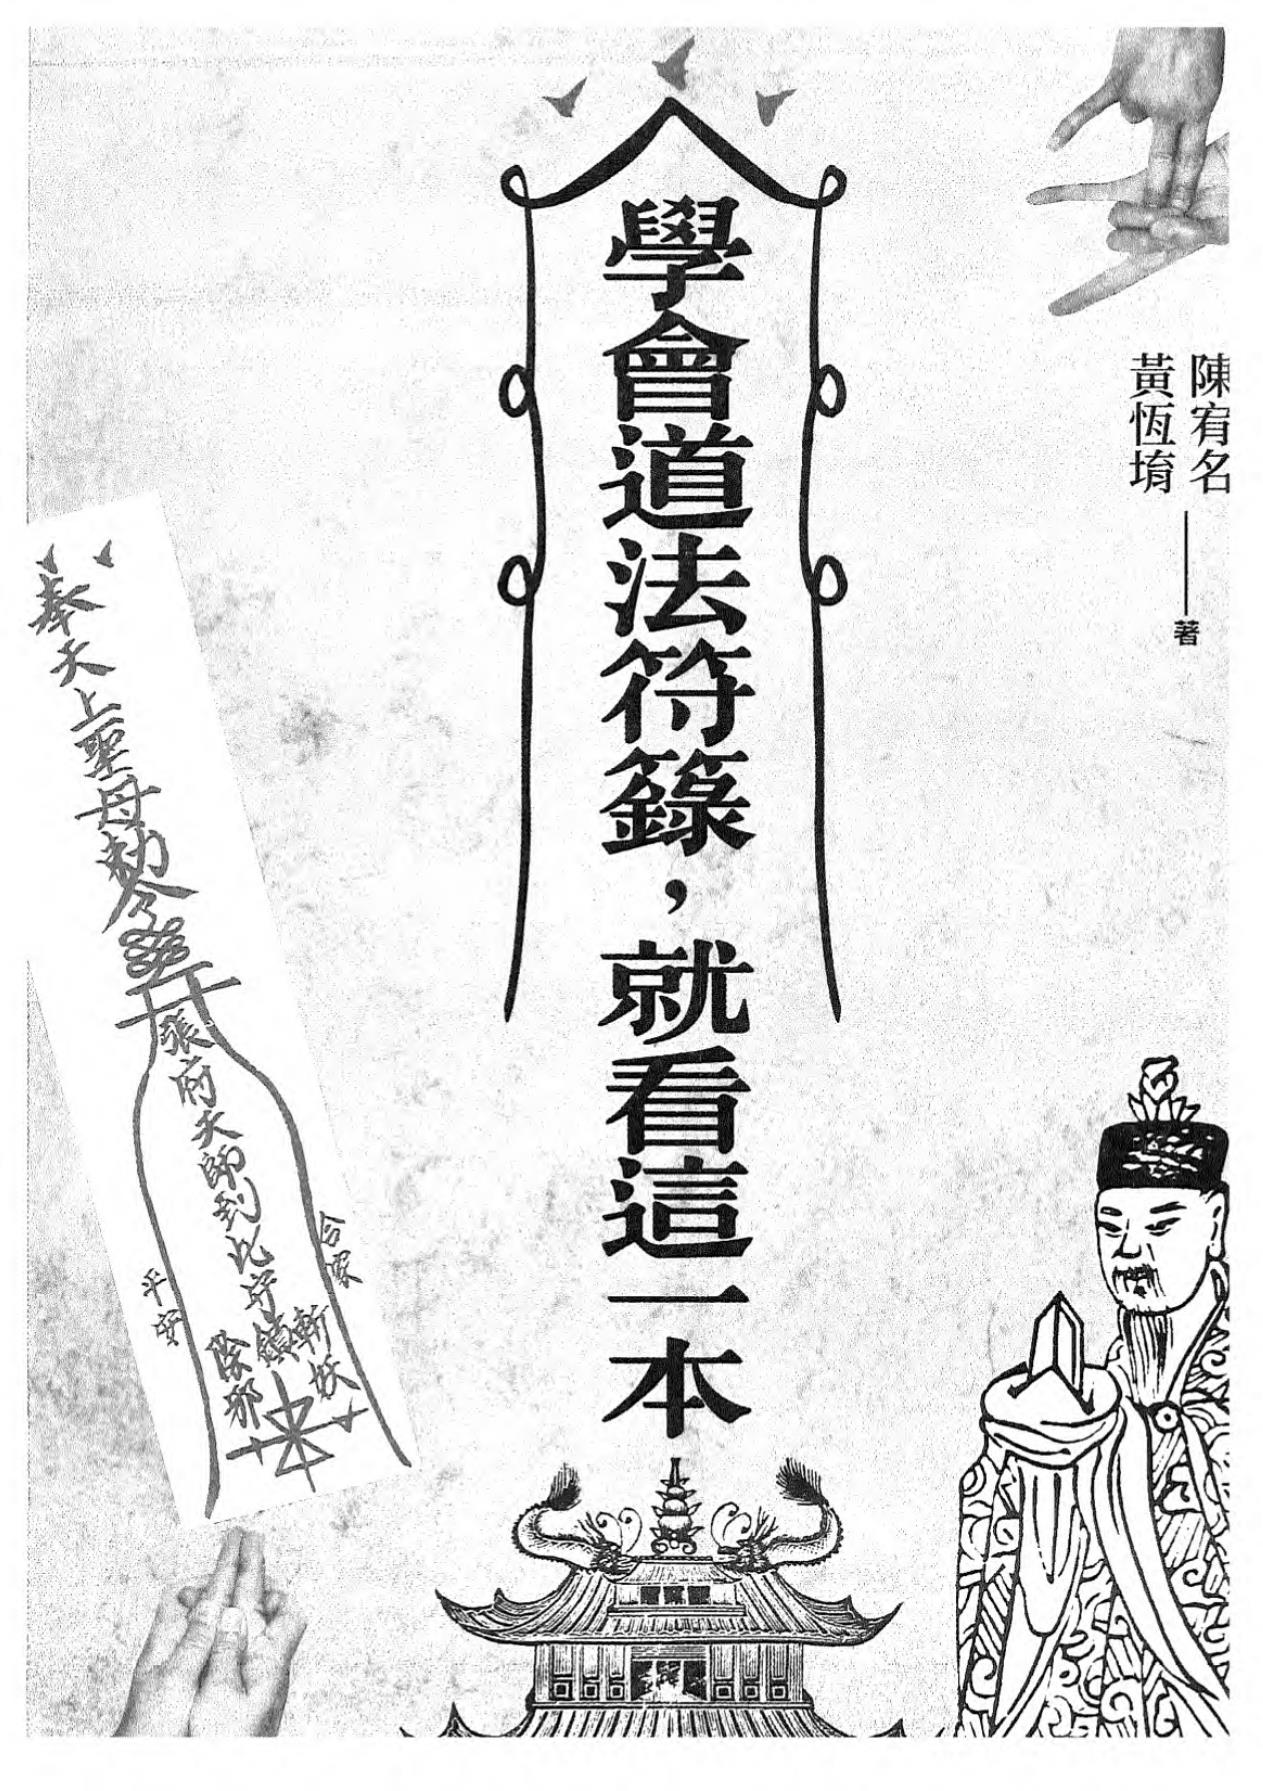 陳宥名
黃恆堉
著
學會道法符籙，就看這一本
奉天上聖母勅令
張府天師到此好鎮
斬妖
除邪
合家
平安